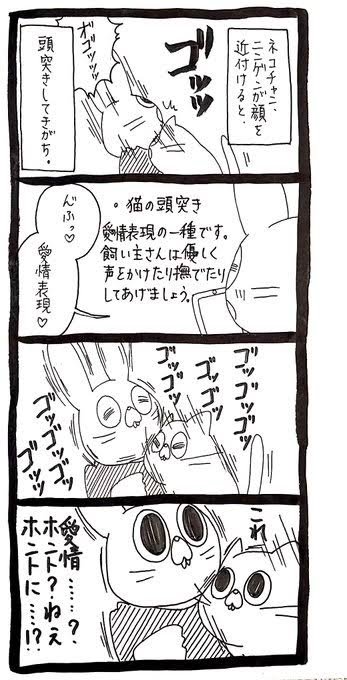 ネコチャン、
ニンゲンが顔を
近付けると、
ゴッッ
オゴッッッ
頭突きしてきがち。
・猫の頭突き
愛情表現の一種です。
飼い主さんは優しく
声をかけたり撫でたり
してあげましょう。
んふっ♡
愛情表現♡
ゴッゴッゴッ
ゴッゴッ
ゴッゴッ
ゴッゴッゴッ
ゴッッ
これ
愛情……？
ホント？ねえ
ホントに……！？